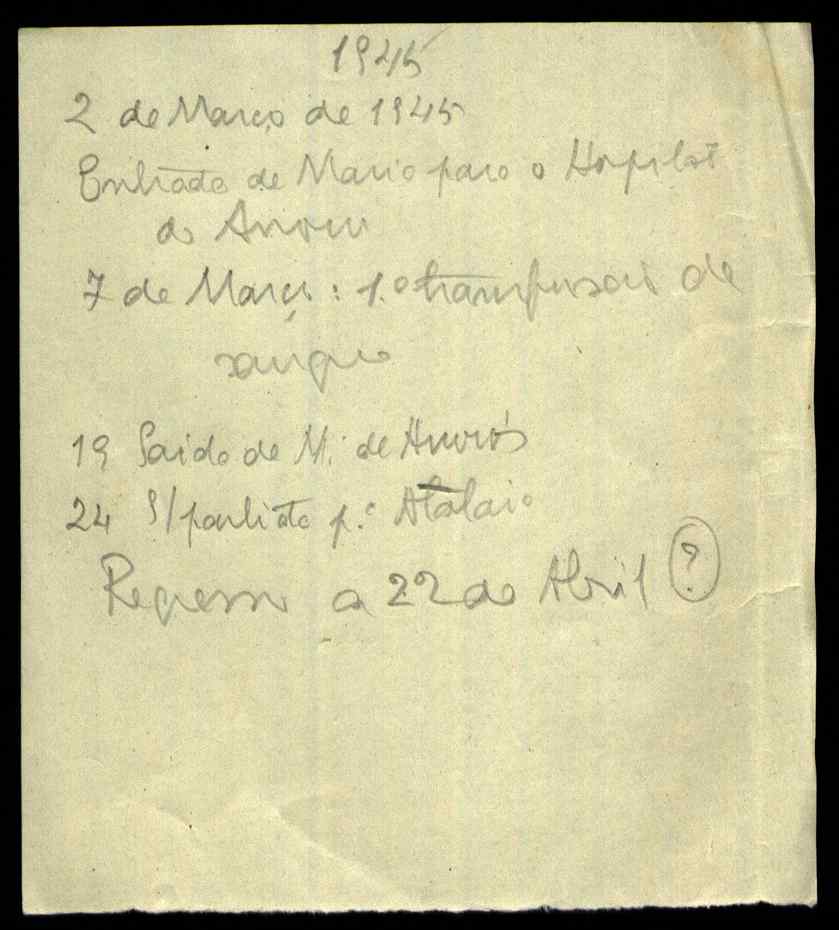 1945
2 de Março de 1945
Entrada de Mario para o Hospital
de Arroios
7 de Março: 1.ª transfusão de
sangue
19 Saida de M. de Arroios
24 S/ partida p.ª Atalaia
Regresso a 22 de Abril ?